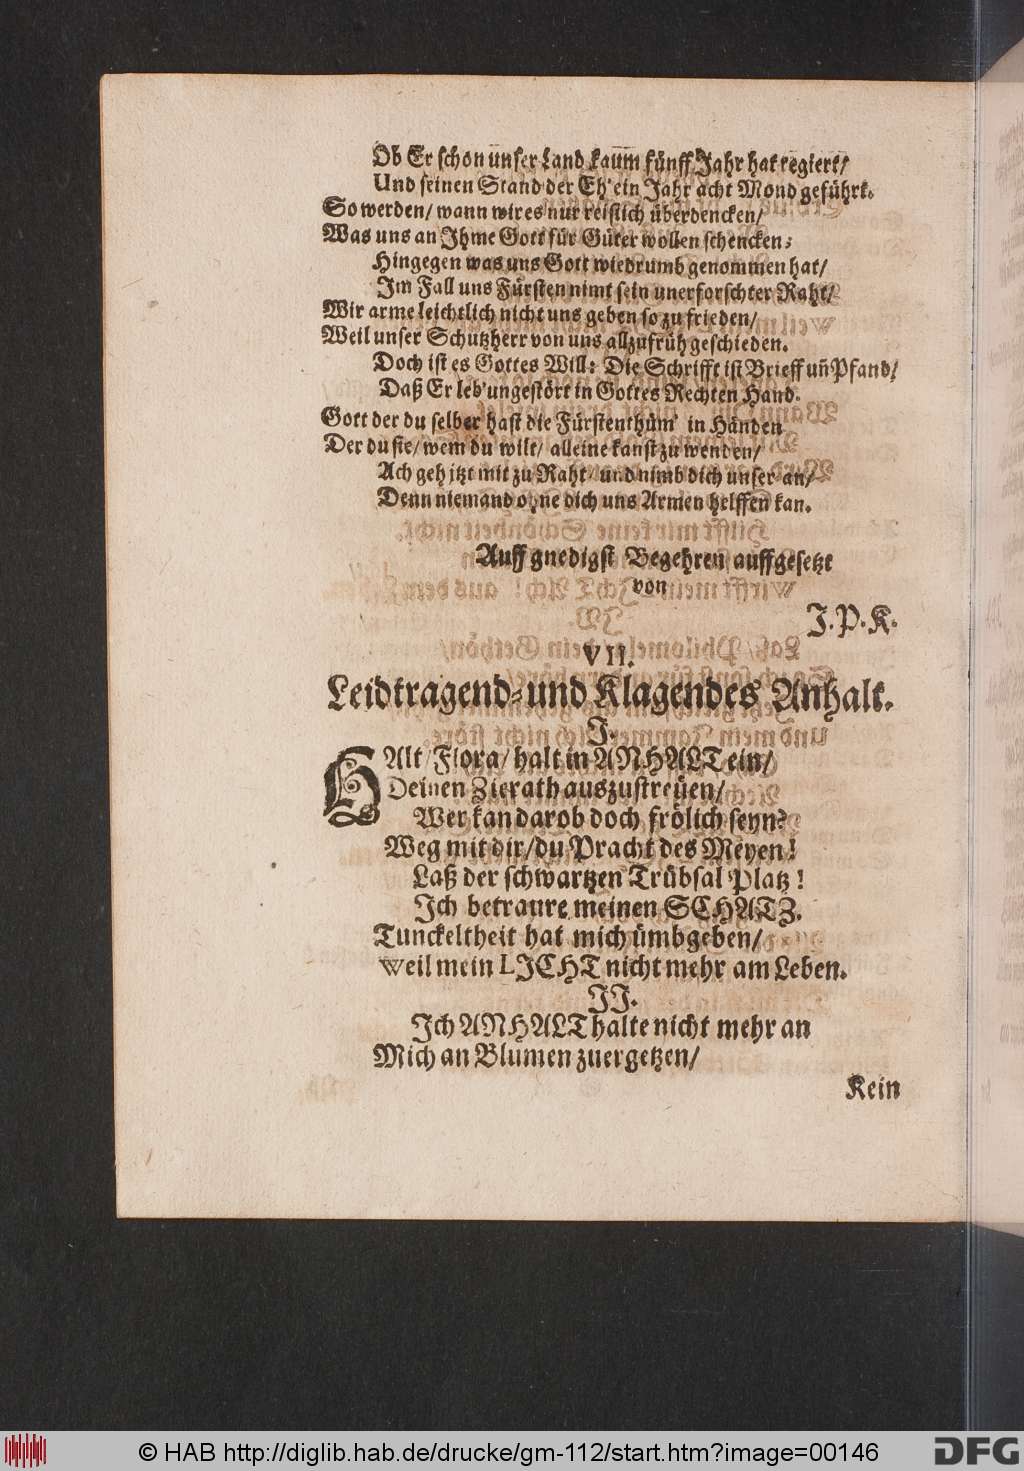 Ob Er schon unser Land kaum fünff Jahr hat regiert/
Und seinen Stand der Eh' ein Jahr acht Mond geführt.
So werden/ wann wir es nur reiflich überdencken/
Was uns an Ihme Gott für Güter wollen schencken;
Hingegen was uns Gott wiedrumb genommen hat/
Im Fall uns Fürsten nimt sein unerforschter Raht/
Wir arme leichtlich nicht uns geben so zu frieden/
Weil unser Schutzherr von uns allzufrüh geschieden.
Doch ist es Gottes Will: Die Schrifft ist Brieff uñ Pfand/
Daß Er leb' ungestört in Gottes Rechten Hand.
Gott der du selber hast die Fürstenthüm' in Händen
Der du sie/ wem du wilt/ alleine kanst zu wenden/
Ach geh jtzt mit zu Raht/ und nimb dich unser an/
Denn niemand ohne dich uns Armen helffen kan.
Auff gnedigst Begehren auffgesetzt
von
J. P. K.
VII.
Leidtragend- und Klagendes Anhalt.
I.
HAlt/ Flora/ halt in ANHALT ein/
Deinen Zierath auszustreüen/
Wer kan darob doch frölich seyn?
Weg mit dir/ du Pracht des Meyen!
Laß der schwartzen Trübsal Platz!
Ich betraure meinen SCHATZ.
Tunckeltheit hat mich ümbgeben/
Weil mein LICHT nicht mehr am Leben.
II.
Ich ANHALT halte nicht mehr an
Mich an Blumen zuergetzen/
Kein
© HAB http://diglib.hab.de/drucke/gm-112/start.htm?image=00146
DFG